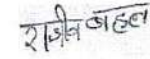 राजीव बहल